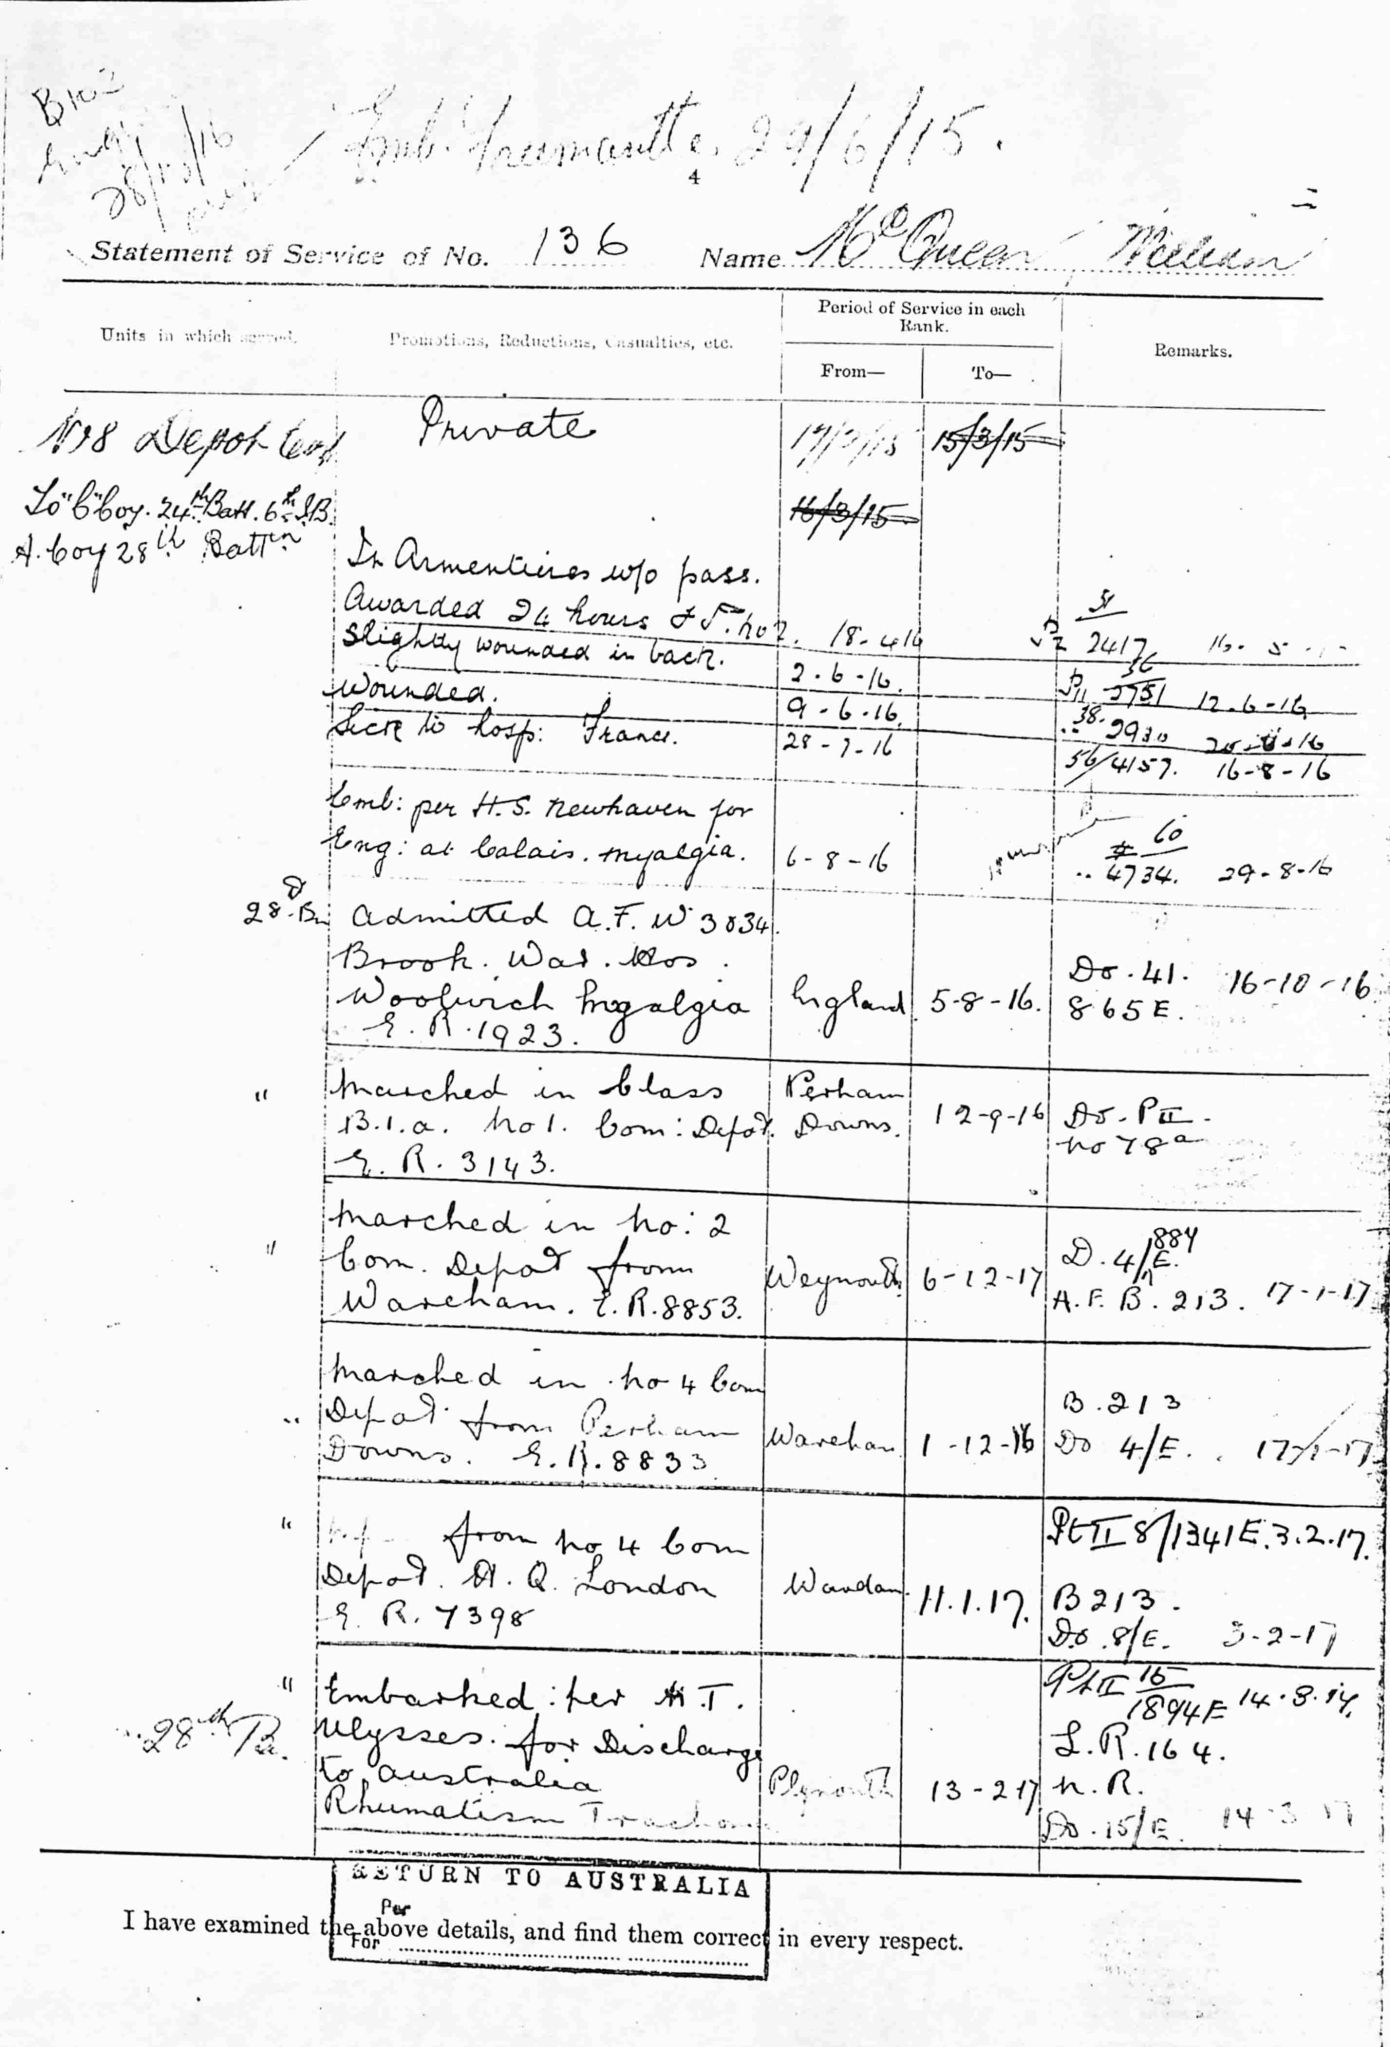 B103
28/10/16
Emb. Fremantle. 29/6/15.
4
Statement of Service of No. 136 Name McQueen, William
Units in which served.
Promotions, Reductions, Casualties, etc.
Period of Service in each
Rank.
From—
To—
Remarks.
No 8 Depot Coy
Private
17/3/15
15/3/15
To "C" Coy. 24th Batt. 6th I.B.
16/3/15
A. Coy 28th Battn
In Armentieres w/o pass.
Awarded 24 hours F.P. No 2. 18-4-16
31
2417 16-5-
Slightly wounded in back. 2-6-16.
36
2751 12-6-16
Wounded. 9-6-16.
38.
2930 20-6-16
Sick to hosp: France. 28-7-16
56/4157. 16-8-16
Emb: per H.S. Newhaven for
Eng: at Calais. Myalgia. 6-8-16
60
4734. 29-8-16
28 Bn Admitted A.F. W 3034.
Brook. War. Hos.
Woolwich Myalgia England 5-8-16.
E.R. 1923.
Do. 41. 16-10-16
865E.
" Marched in Class
B.1.a. No 1. Com: Depot.
E.R. 3143.
Perham
Downs.
12-9-16
Do. P II
No 78a
" Marched in No: 2
Com. Depot from
Wareham. E.R. 8853.
Weymouth 6-12-17
884
D. 4/E.
A.F. B. 213. 17-1-17
" Marched in No 4 Com
Depot from Perham
Downs. E.R. 8833
Wareham 1-12-16
B. 213
Do 4/E. 17-1-17
" from No 4 Com
Depot. H.Q. London
E.R. 7398
11.1.17.
Pt II 8/1341E. 3.2.17.
B 213.
Do. 8/E. 3-2-17
" Embarked: per H.T.
28th Bn. Ulysses. for Discharge
to Australia
Rhumatism Trachoma
Plymouth 13-2-17
Pt II 15/1894E 14.3.17.
L.R. 164.
N.R.
Do. 15/E. 14-3-17
RETURN TO AUSTRALIA
Per
For
I have examined the above details, and find them correct in every respect.